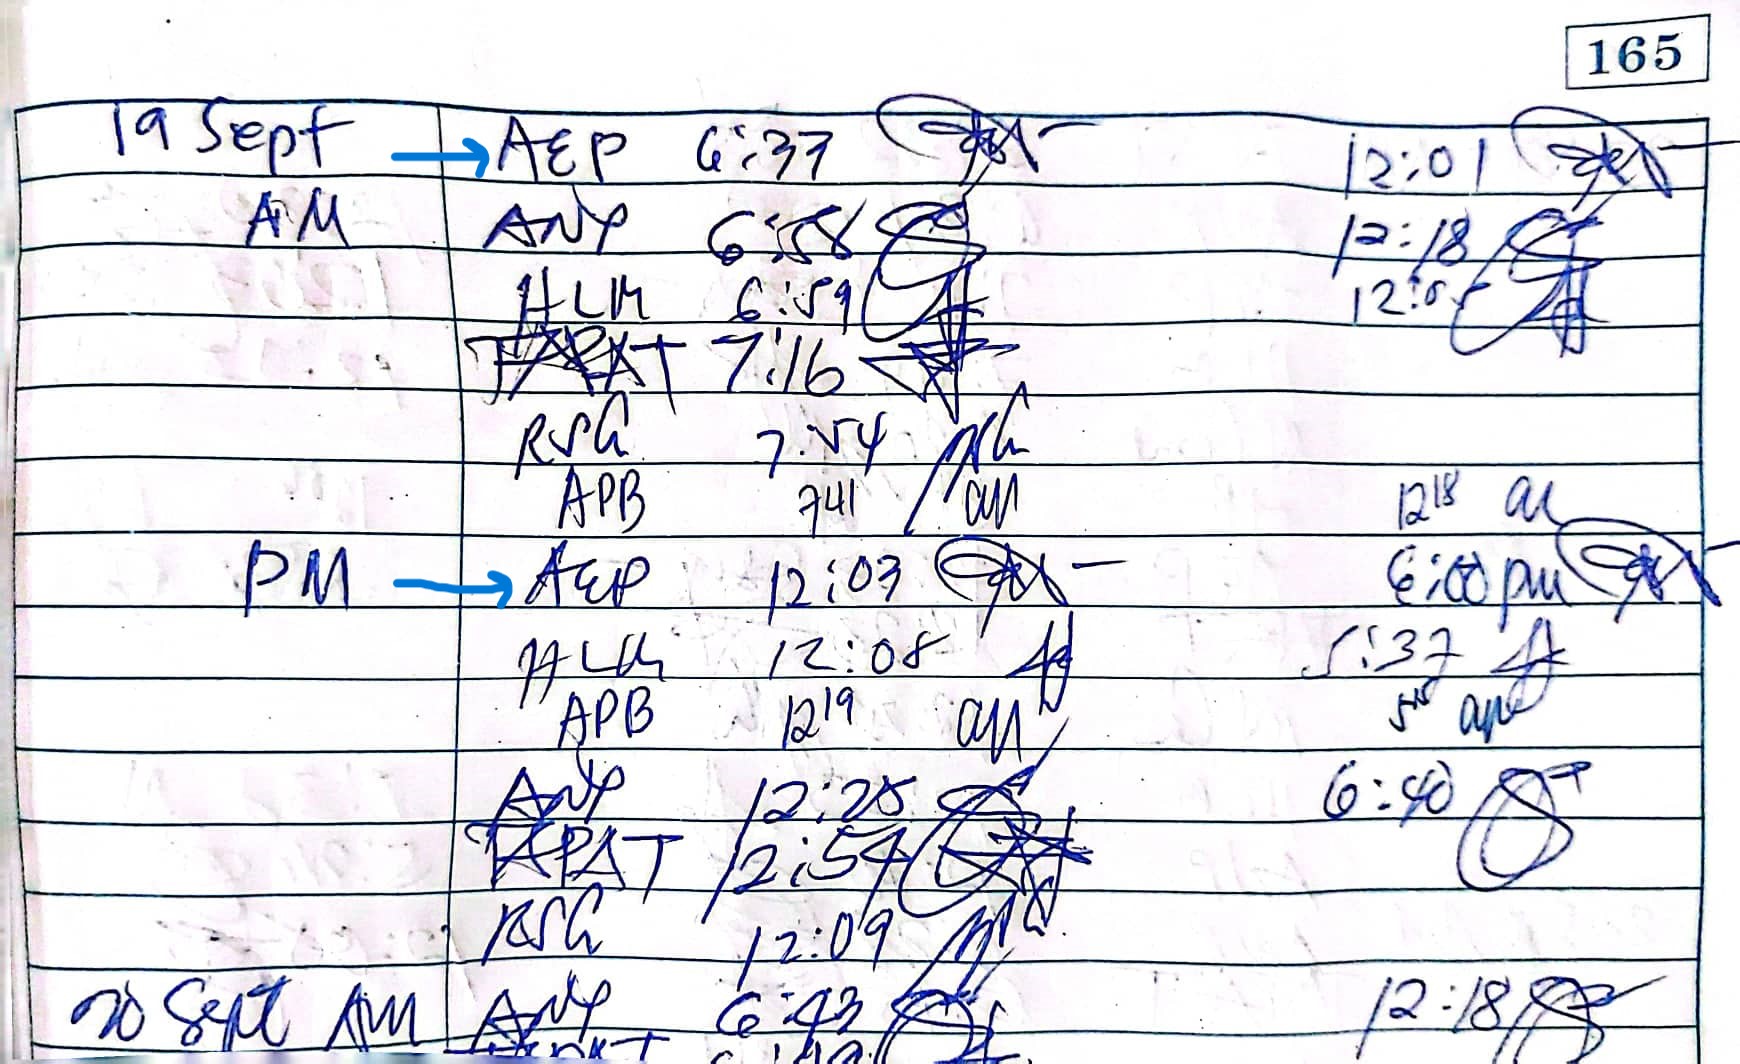 165
19 Sept AEP 6:37 12:01
AM ANP 6:58 12:18
HLM 6:59 12:05
TAPAT 7:16
RSG 7:54
APB 741 1218
PM AEP 12:03 6:00 pm
HLM 12:08 5:37
APB 1219
ANP 12:25 6:40
TAPAT 12:54
RSG 12:09
20 Sept AM ANP 6:43 12:18